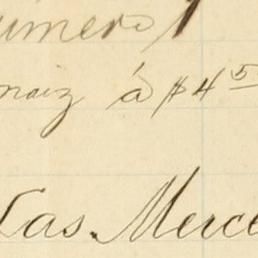 número 1
maiz á $4 5
Las Merce